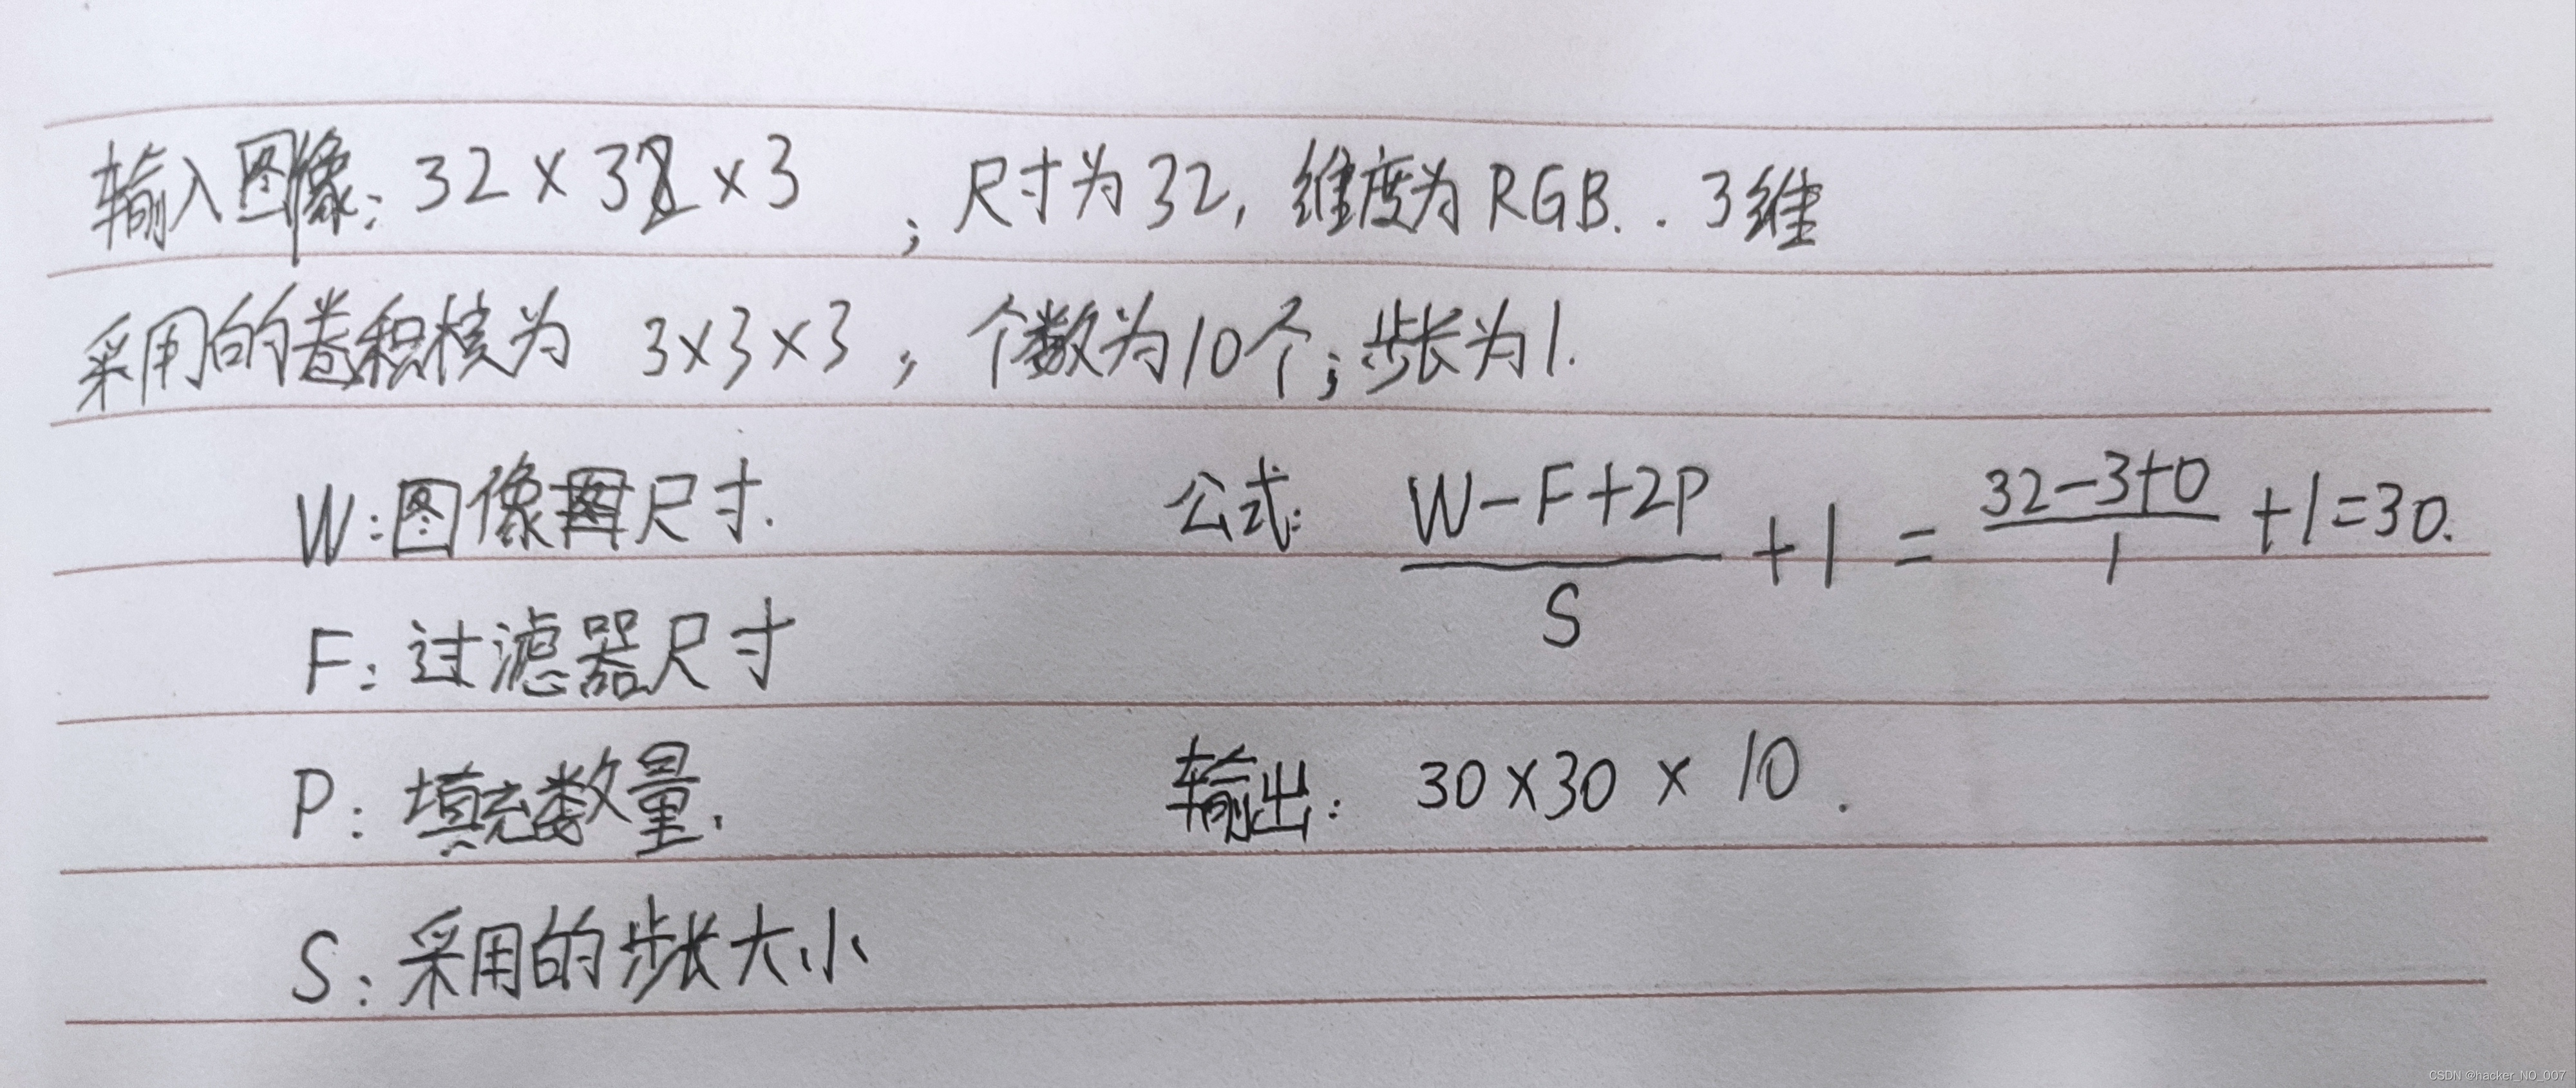 输入图像: 32 × 32 × 3 ; 尺寸为 32, 维度为 RGB. . 3维
采用的卷积核为 3×3×3 , 个数为10个; 步长为1.
W: 图像尺寸.
公式: \frac{W-F+2P}{S} + 1 = \frac{32-3+0}{1} +1=30.
F: 过滤器尺寸
P: 填充数量.
输出: 30×30 × 10 .
S: 采用的步长大小
CSDN @hacker_NO_007